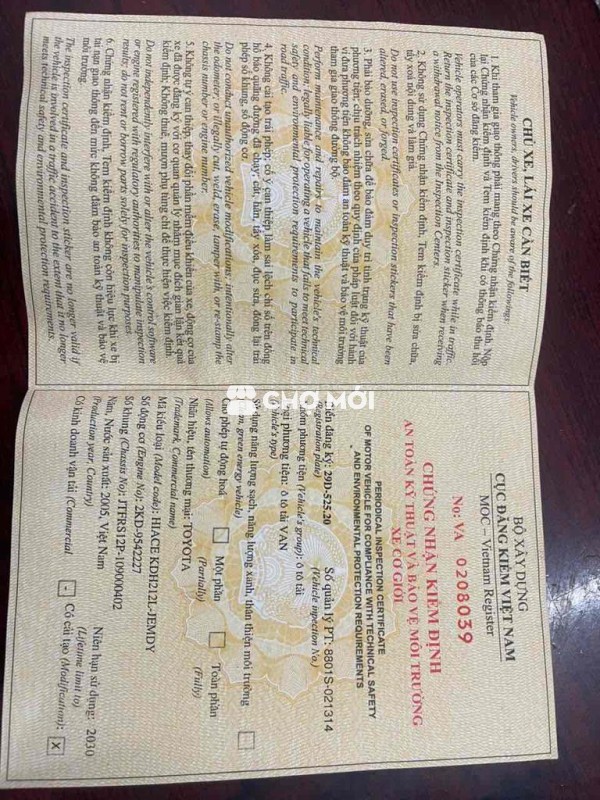 CHỦ XE, LÁI XE CẦN BIẾT
Vehicle owners, drivers should be aware of the followings:
1. Khi tham gia giao thông phải mang theo Chứng nhận kiểm định. Nộp
lại Chứng nhận kiểm định và Tem kiểm định khi có thông báo thu hồi
của các Cơ sở đăng kiểm.
Vehicle operator must carry the inspection certificate while in traffic.
Return the inspection certificate and inspection sticker when receiving
a withdrawal notice from the Inspection Centers.
2. Không sử dụng Chứng nhận kiểm định, Tem kiểm định bị sửa chữa,
tẩy xoá nội dung và làm giả.
Do not use inspection certificates or inspection stickers that have been
altered, erased, or forged.
3. Phải bảo dưỡng, sửa chữa để bảo đảm duy trì tình trạng kỹ thuật của
phương tiện; chịu trách nhiệm theo quy định của pháp luật đối với hành
vi đưa phương tiện không bảo đảm an toàn kỹ thuật và bảo vệ môi trường
tham gia giao thông đường bộ.
Perform maintenance and repairs to maintain the vehicle's technical
condition; legally liable for operating a vehicle that fails to meet technical
safety and environmental protection requirements to participate in
road traffic.
4. Không cải tạo trái phép; cố ý can thiệp làm sai lệch chỉ số trên đồng
hồ báo quãng đường đã chạy; cắt, hàn, tẩy xóa, đục sửa, đóng lại trái
phép số khung, số động cơ.
Do not conduct unauthorized vehicle modifications; intentionally alter
the odometer; or illegally cut, weld, erase, tamper with, or re-stamp the
chassis number or engine number.
5. Không tự can thiệp, thay đổi phần mềm điều khiển của xe, động cơ của
xe đã được đăng ký với cơ quan quản lý nhằm mục đích gian lận kết quả
kiểm định. Không thuê, mượn phụ tùng chỉ để thực hiện việc kiểm định.
Do not independently interfere with or alter the vehicle's control software
or engine registered with regulatory authorities to manipulate inspection
results; do not rent or borrow parts solely for inspection purposes.
6. Chứng nhận kiểm định, Tem kiểm định không còn hiệu lực khi xe bị
tai nạn giao thông đến mức không đảm bảo an toàn kỹ thuật và bảo vệ
môi trường.
The inspection certificate and inspection sticker are no longer valid if
the vehicle is involved in a traffic accident to the extent that it no longer
meets technical safety and environmental protection requirements.
BỘ XÂY DỰNG
CỤC ĐĂNG KIỂM VIỆT NAM
MOC – Vietnam Register
No: VA 0208039
CHỨNG NHẬN KIỂM ĐỊNH
AN TOÀN KỸ THUẬT VÀ BẢO VỆ MÔI TRƯỜNG
XE CƠ GIỚI
PERIODICAL INSPECTION CERTIFICATE
OF MOTOR VEHICLE FOR COMPLIANCE WITH TECHNICAL SAFETY
AND ENVIRONMENTAL PROTECTION REQUIREMENTS
Biển đăng ký: 29D-525.20 Số quản lý PT: 8801S-021314
(Registration plate) (Vehicle inpection No.)
Nhóm phương tiện (Vehicle's group): ô tô tải
Loại phương tiện: ô tô tải VAN
(Vehicle's type)
Sử dụng năng lượng sạch, năng lượng xanh, thân thiện môi trường
green energy vehicle)
Cho phép tự động hoá Một phần Toàn phần
(Allows automation) (Partially) (Fully)
Nhãn hiệu, tên thương mại: TOYOTA
(Trademark, Commercial name)
Mã kiểu loại (Model code): HIACE KDH212L-JEMDY
Số động cơ (Engine No): 2KD-9542227
Số khung (Chassis No): JTFRS12P-109000402
Năm, Nước sản xuất: 2005, Việt Nam Niên hạn sử dụng: 2030
(Production year, Country) (Lifetime limit to)
Có kinh doanh vận tải (Commercial - Có cải tạo (Modification): X
CHỢ MỚI